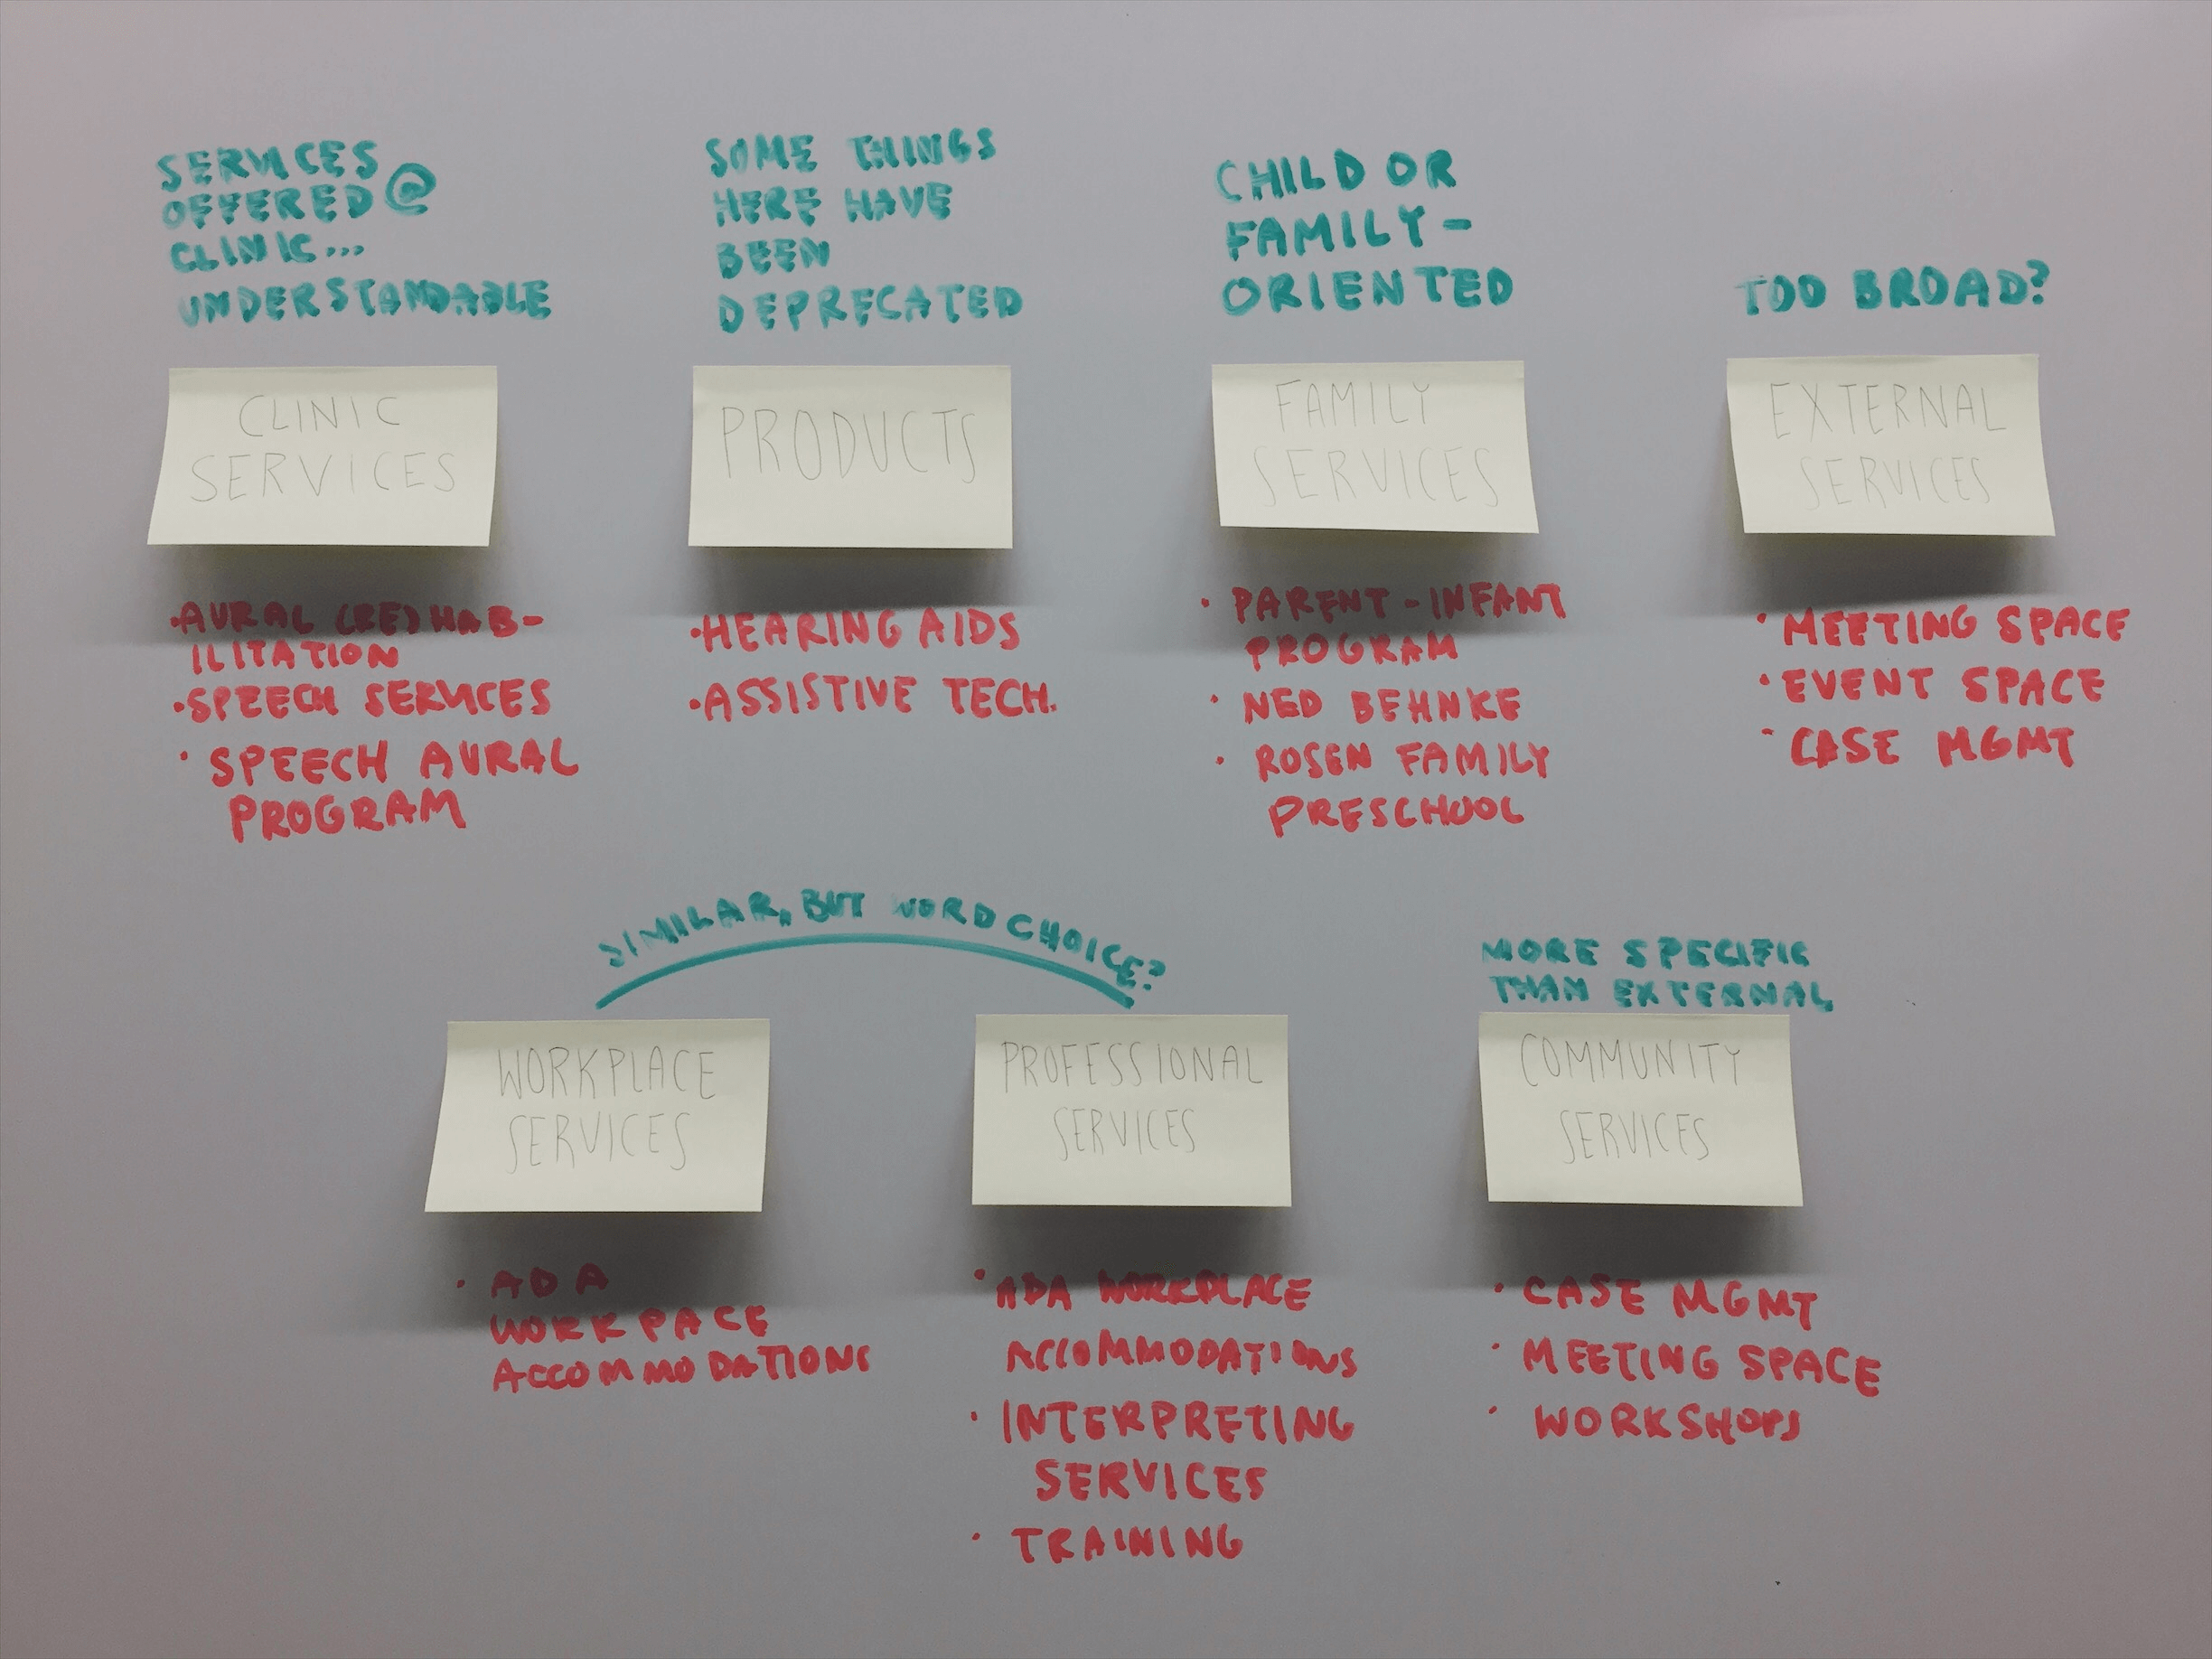 SERVICES
OFFERED @
CLINIC...
UNDERSTANDABLE
CLINIC
SERVICES
•AURAL (RE)HAB-
ILITATION
•SPEECH SERVICES
• SPEECH AURAL
PROGRAM
SOME THINGS
HERE HAVE
BEEN
DEPRECATED
PRODUCTS
•HEARING AIDS
•ASSISTIVE TECH.
CHILD OR
FAMILY-
ORIENTED
FAMILY
SERVICES
• PARENT-INFANT
PROGRAM
• NED BEHNKE
• ROSEN FAMILY
PRESCHOOL
TOO BROAD?
EXTERNAL
SERVICES
• MEETING SPACE
• EVENT SPACE
• CASE MGMT
SIMILAR, BUT WORD CHOICE?
WORKPLACE
SERVICES
• ADA
WORKPACE
ACCOMMODATIONS
PROFESSIONAL
SERVICES
• ADA WORKPLACE
ACCOMMODATIONS
• INTERPRETING
SERVICES
• TRAINING
MORE SPECIFIC
THAN EXTERNAL
COMMUNITY
SERVICES
• CASE MGMT
• MEETING SPACE
• WORKSHOPS